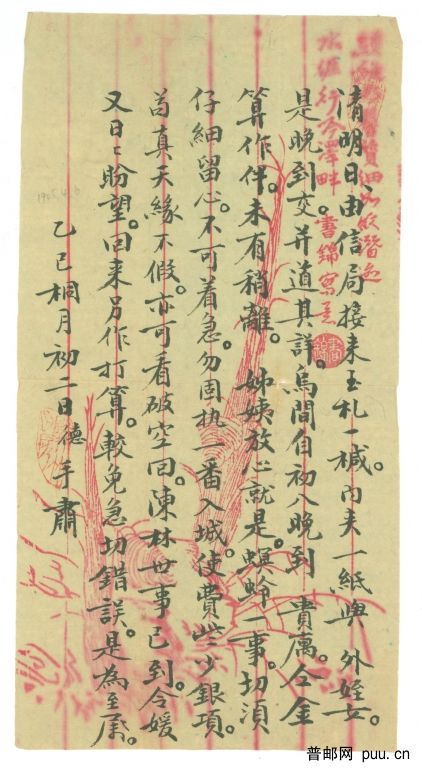 清明日、由信局接来玉札一椷。内夹一紙與外姪女。
是晚到交。并道其詳。烏間自初八晚到貴厲。令金
算作伴。未有稍離。姊姨放心就是。螟蛉一事。切須
仔細留心。不可着急。勿固执一番入城。使費些少銀項。
苟真天緣不假。亦可看破空回。陳林世事。已到令媛
又日日盼望。回来另作打算。較免急切錯誤。是為至屬。
乙巳桐月初二日德手肅
1905.4.6
書錦寫意
普邮网 puu.cn